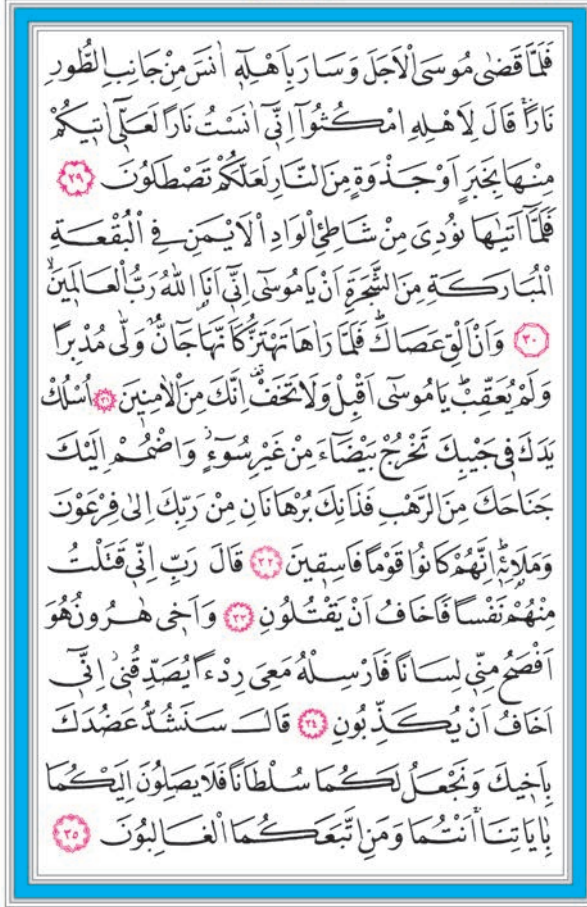 فَلَمَّا قَضٰى مُوسَى الْاَجَلَ وَسَارَ بِاَهْلِهٖٓ اٰنَسَ مِنْ جَانِبِ الطُّورِ
نَارًاۚ قَالَ لِاَهْلِهِ امْكُثُٓوا اِنّٖٓي اٰنَسْتُ نَارًا لَعَلّٖٓي اٰتٖيكُمْ
مِنْهَا بِخَبَرٍ اَوْ جَذْوَةٍ مِنَ النَّارِ لَعَلَّكُمْ تَصْطَلُونَ ﴿٢٩﴾
فَلَمَّٓا اَتٰيهَا نُودِيَ مِنْ شَاطِئِ الْوَادِ الْاَيْمَنِ فِي الْبُقْعَةِ
الْمُبَارَكَةِ مِنَ الشَّجَرَةِ اَنْ يَا مُوسٰٓى اِنّٖٓي اَنَا اللّٰهُ رَبُّ الْعَالَمٖينَۙ
﴿٣٠﴾ وَاَنْ اَلْقِ عَصَاكَۜ فَلَمَّا رَاٰهَا تَهْتَزُّ كَاَنَّهَا جَٓانٌّ وَلّٰى مُدْبِرًا
وَلَمْ يُعَقِّبْۜ يَا مُوسٰٓى اَقْبِلْ وَلَا تَخَفْ۠ اِنَّكَ مِنَ الْاٰمِنٖينَ ﴿٣١﴾ اُسْلُكْ
يَدَكَ فٖي جَيْبِكَ تَخْرُجْ بَيْضَٓاءَ مِنْ غَيْرِ سُٓوءٍۘ وَاضْمُمْ اِلَيْكَ
جَنَاحَكَ مِنَ الرَّهْبِ فَذَانِكَ بُرْهَانَانِ مِنْ رَبِّكَ اِلٰى فِرْعَوْنَ
وَمَلَا۬ئِهٖۜ اِنَّهُمْ كَانُوا قَوْمًا فَاسِقٖينَ ﴿٣٢﴾ قَالَ رَبِّ اِنّٖي قَتَلْتُ
مِنْهُمْ نَفْسًا فَاَخَافُ اَنْ يَقْتُلُونِ ﴿٣٣﴾ وَاَخٖي هٰرُونُ هُوَ
اَفْصَحُ مِنّٖي لِسَانًا فَاَرْسِلْهُ مَعِيَ رِدْءًا يُصَدِّقُنٖيۘ اِنّٖٓي
اَخَافُ اَنْ يُكَذِّبُونِ ﴿٣٤﴾ قَالَ سَنَشُدُّ عَضُدَكَ
بِاَخٖيكَ وَنَجْعَلُ لَكُمَا سُلْطَانًا فَلَا يَصِلُونَ اِلَيْكُمَا
بِاٰيَاتِنَاۚ اَنْتُمَا وَمَنِ اتَّبَعَكُمَا الْغَالِبُونَ ﴿٣٥﴾